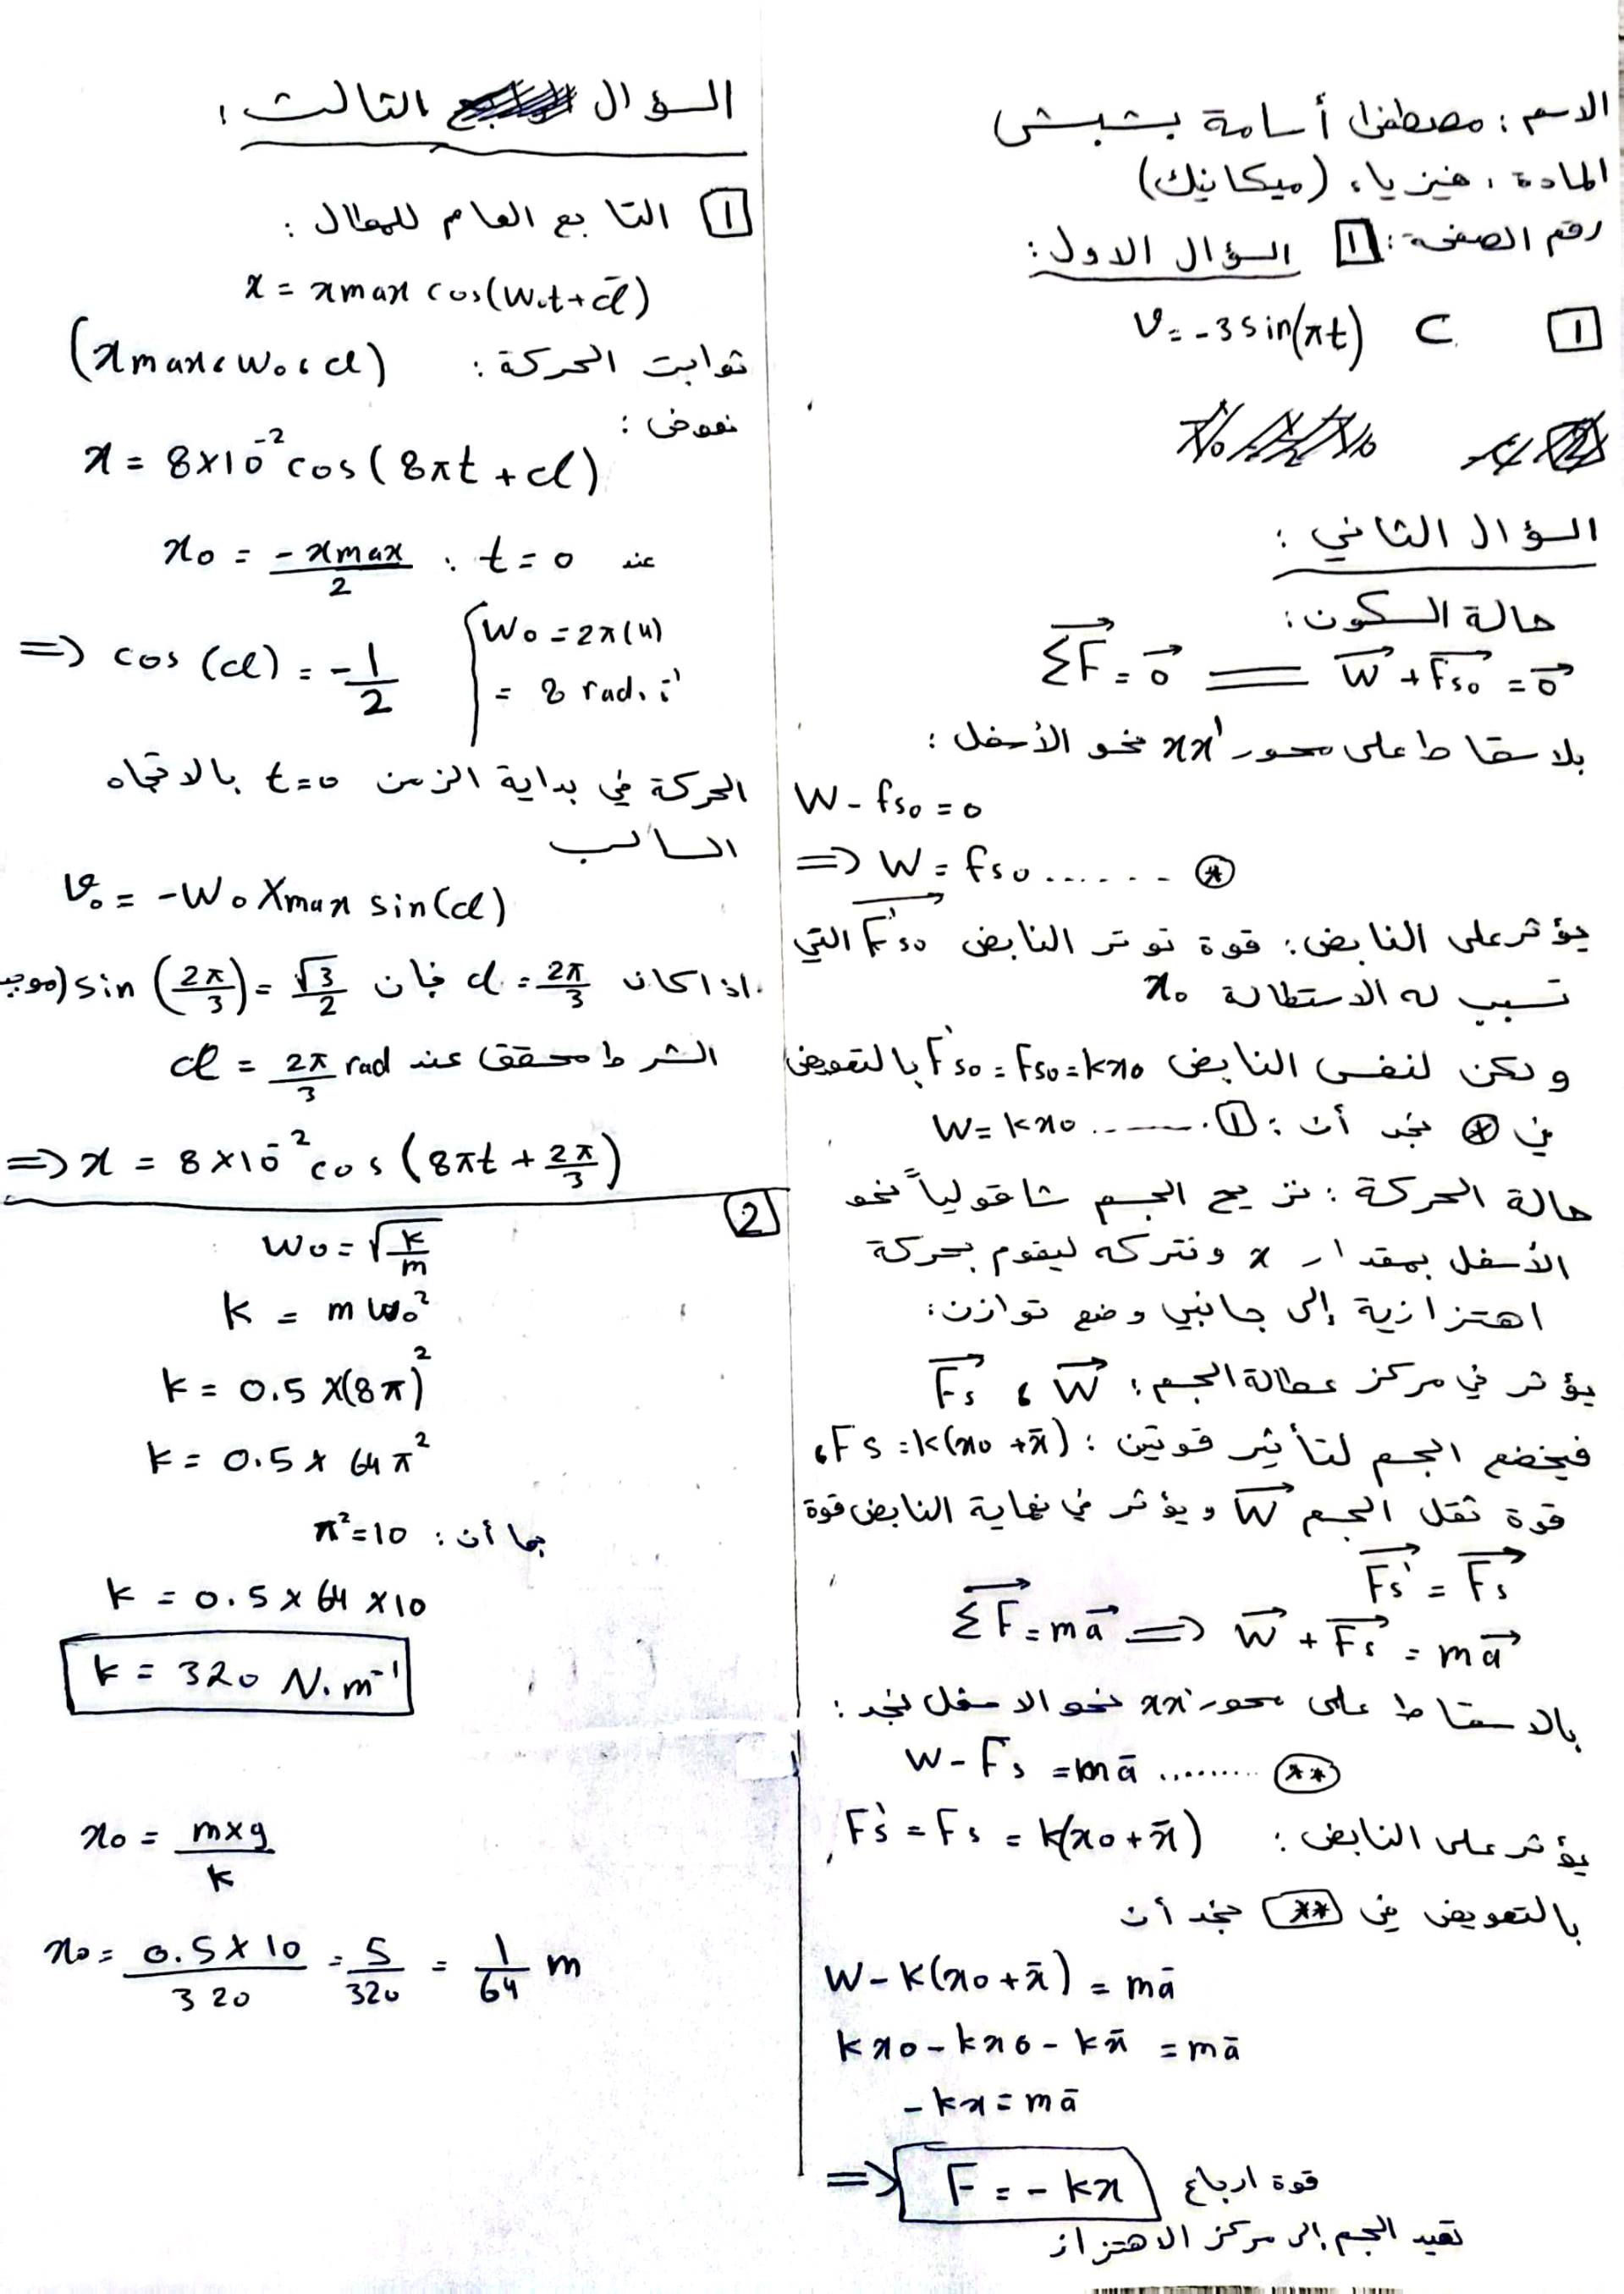 الاسم : مصطفى أسامة بشبش
المادة : فيزياء (ميكانيك)
رقم الصفحة : 1 السؤال الاول :
1 C v = -3 sin(πt)
السؤال الثاني :
حالة السكون :
ΣF = 0 ══ W + Fs₀ = 0
بلاسقاط على محور xx' نحو الأسفل :
W - fs₀ = 0
=> W = fs₀ ...... *
يؤثر على النابض : قوة توتر النابض F's₀ التي
تسبب له الاستطالة x₀
ولكن لنفس النابض F's₀ = Fs₀ = kx₀ بالتعويض
في * نجد أن : W = kx₀ ....... 1
حالة الحركة : نزيح الجسم شاقولياً نحو
الأسفل بمقدار x ونتركه ليقوم بحركة
اهتزازية إلى جانبي وضع توازن :
يؤثر في مركز عطالة الجسم : W , Fs
فيخضع الجسم لتأثير قوتين : Fs = k(x₀ + x̄) ,
قوة ثقل الجسم W ويؤثر في نهاية النابض قوة
Fs' = Fs
ΣF = ma => W + Fs = ma
بالاسقاط على محور xx' نحو الاسفل نجد :
W - Fs = mā ......... **
يؤثر على النابض : Fs' = Fs = k(x₀ + x̄)
بالتعويض في ** نجد أن
W - k(x₀ + x̄) = mā
kx₀ - kx₀ - kx̄ = mā
-kx = mā
=> F = -kx قوة ارجاع
تعيد الجسم إلى مركز الاهتزاز
السؤال الثالث :
1 التابع العام للمطال :
x = xmax cos(w₀t + ᾱ)
ثوابت الحركة : (xmax , w₀ , α)
نعوض :
x = 8×10⁻² cos(8πt + α)
عند t = 0 : x₀ = -xmax/2
w₀ = 2π(4)
=> cos(α) = -1/2
= 8 rad.s⁻¹
الحركة في بداية الزمن t=0 بالاتجاه
السالب
v₀ = -w₀ Xmax sin(α)
اذا كان α = 2π/3 فان sin(2π/3) = √3/2 (موجب
الشرط محقق عند α = 2π/3 rad
=> x = 8×10⁻² cos(8πt + 2π/3)
2
w₀ = √(k/m)
k = m w₀²
k = 0.5 x(8π)²
k = 0.5 x 64 π²
بما أن : π² = 10
k = 0.5 x 64 x 10
k = 320 N.m⁻¹
x₀ = mxg/k
x₀ = 0.5 x 10/320 = 5/320 = 1/64 m